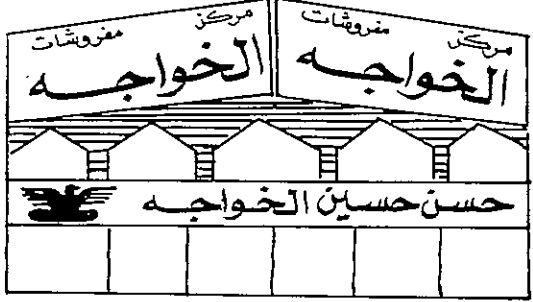 مركز مفروشات
الخواجه
مركز مفروشات
الخواجه
حسن حسين الخواجه